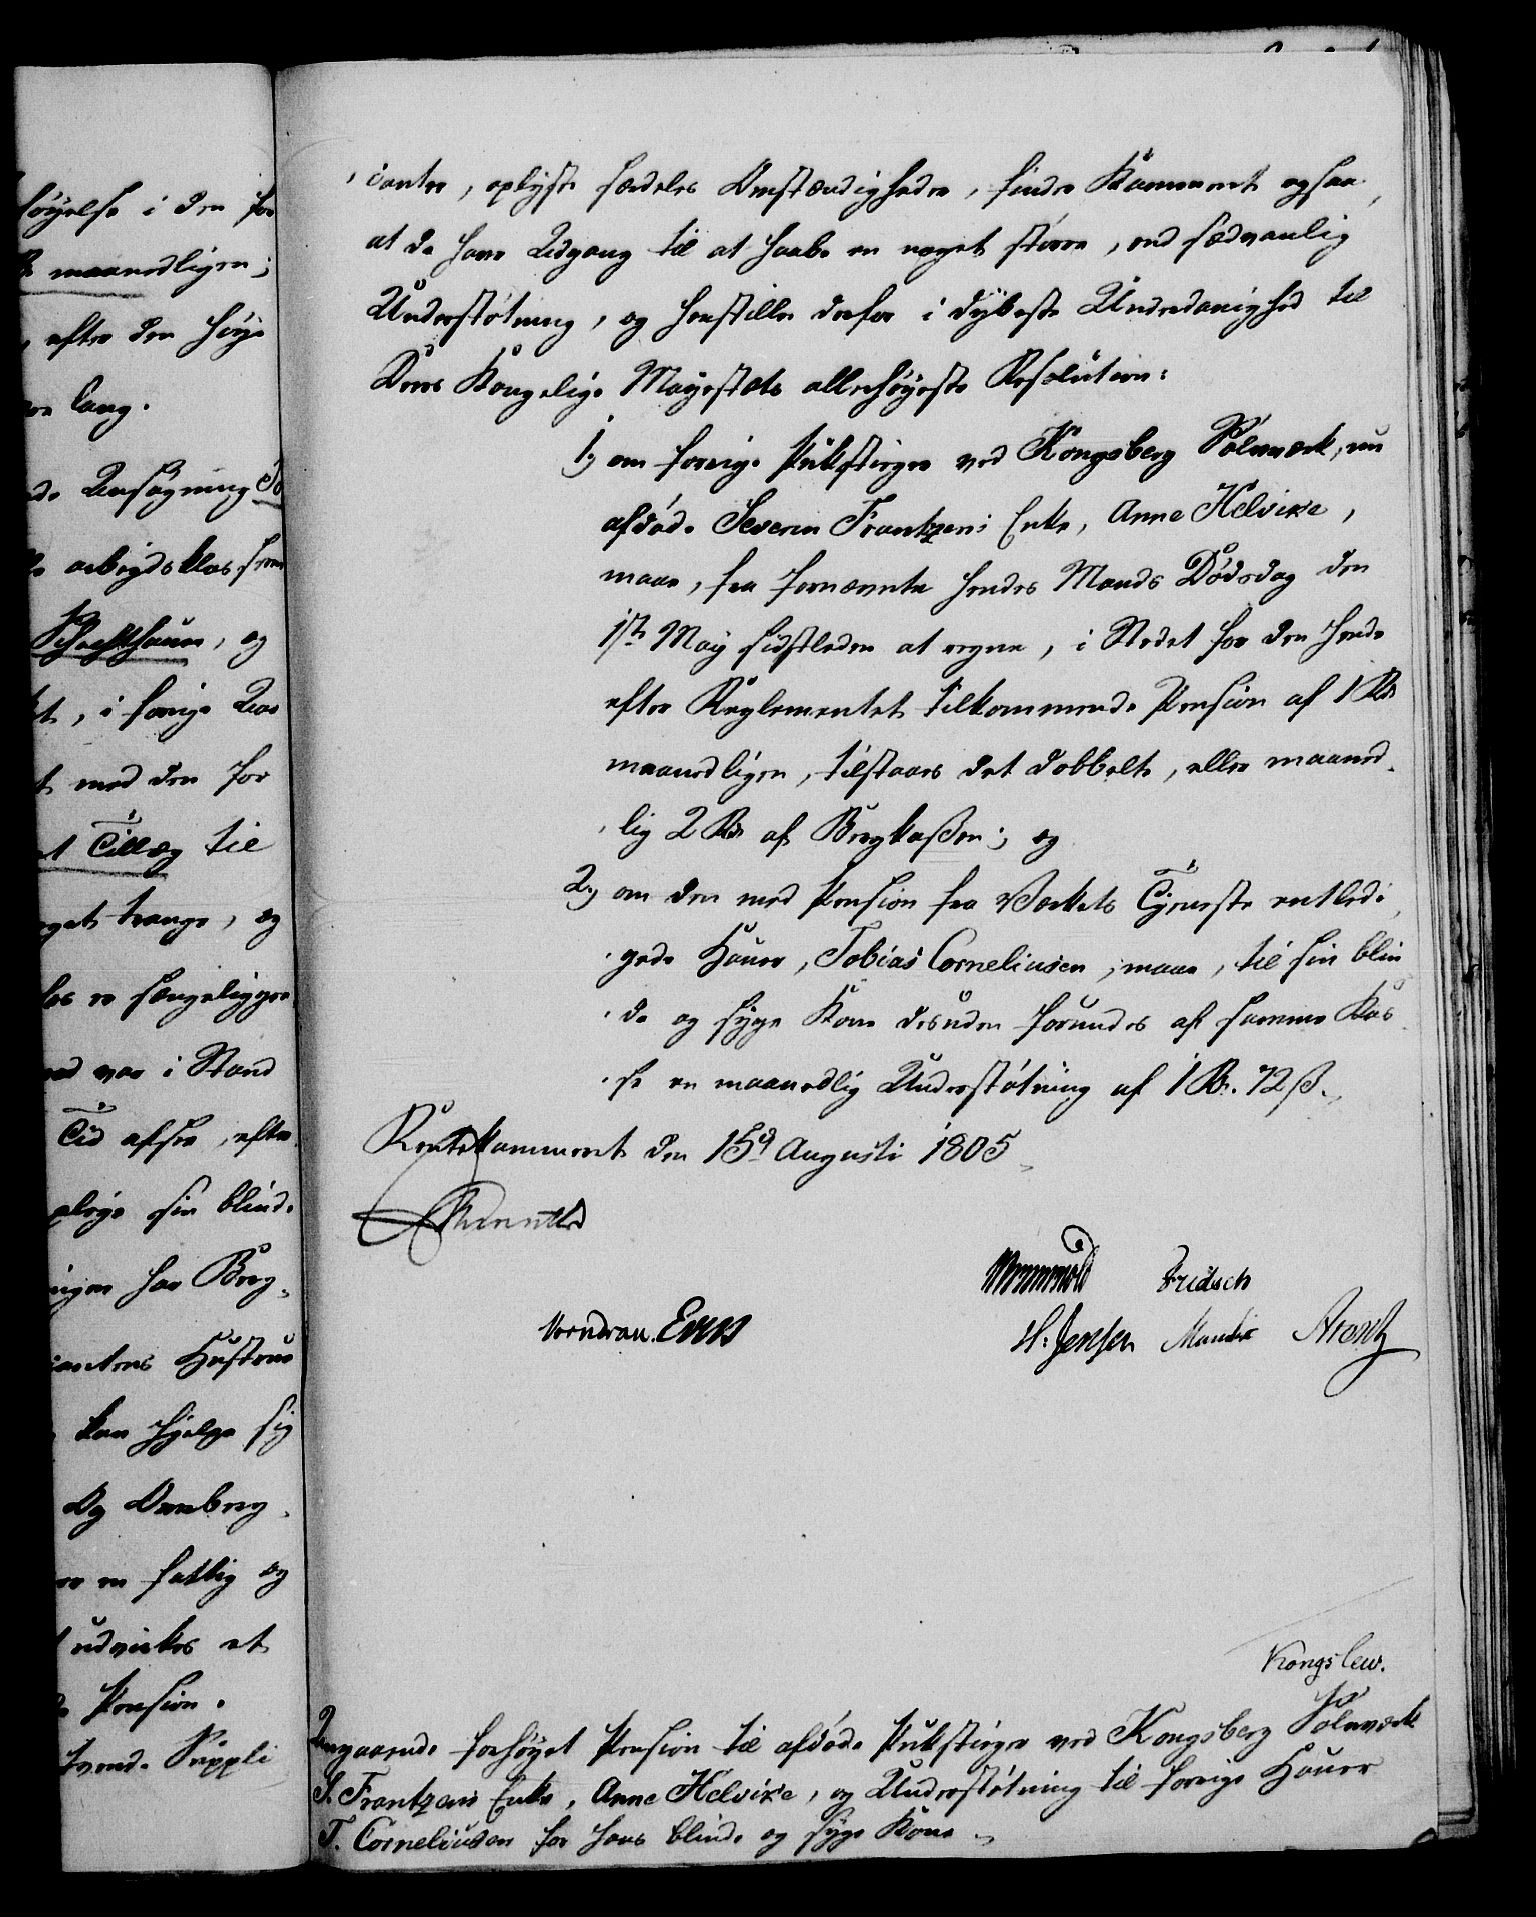 føyelse i den for
maanedligen;
efter den høye
lang.
Ansøgning
arbejdsløs from
, og
t, i forrige
t med den for
Tillæg til
get trange, og
er sengeliggen
ved var i Stand
Tid afsee, efter
pleye sin blinde
ingen har Berg-
cantens Hustrue
kan hjelpe sig
Og Overberg-
er en fattig og
udvirkes et
Pension.
tvende Suppli
canter, oplyste særdeles Omstændigheder, finder Kammeret ogsaa,
at de have Adgang til at haabe en noget større, end sædvanlig
Understøtning, og henstiller derfor i dybeste Underdanighed til
Deres Kongelige Mayestæts allerhøyeste Resolution:
1.) om forrige Pukstiger ved Kongsberg Sølvværk, nu
afdøde Severin Frantzens Enke, Anne Helvike,
maae, fra fornævnte hendes Mands Dødsdag den
1ste May sidstleden at regne, i Stedet for den hende
efter Reglementet tilkommende Pension af 1 Rd
maanedligen, tilstaaes det dobbelte, eller maaned-
lig 2 Rd af Bergkassen; og
2.) om den med Pension fra Værkets Tjeneste entledi-
gede Hauer, Tobias Corneliusen, maae, til sin blin-
de og syge Kone desuden forundes af samme Kas-
se en maanedlig Understøtning af 1 Rd. 72 ß.
Rentekammeret den 15d Augusti 1805
Fridsch
Vendrau. Evers
H. Jensen Mandix Arentz
Kongslew.
Angaaende forhøyet Pension til afdøde Pukstiger ved Kongsberg Sølvværk
S. Frantzens Enke, Anne Helvike, og Understøtning til forrige Hauer
T. Corneliusen for hans blinde og syge Kone